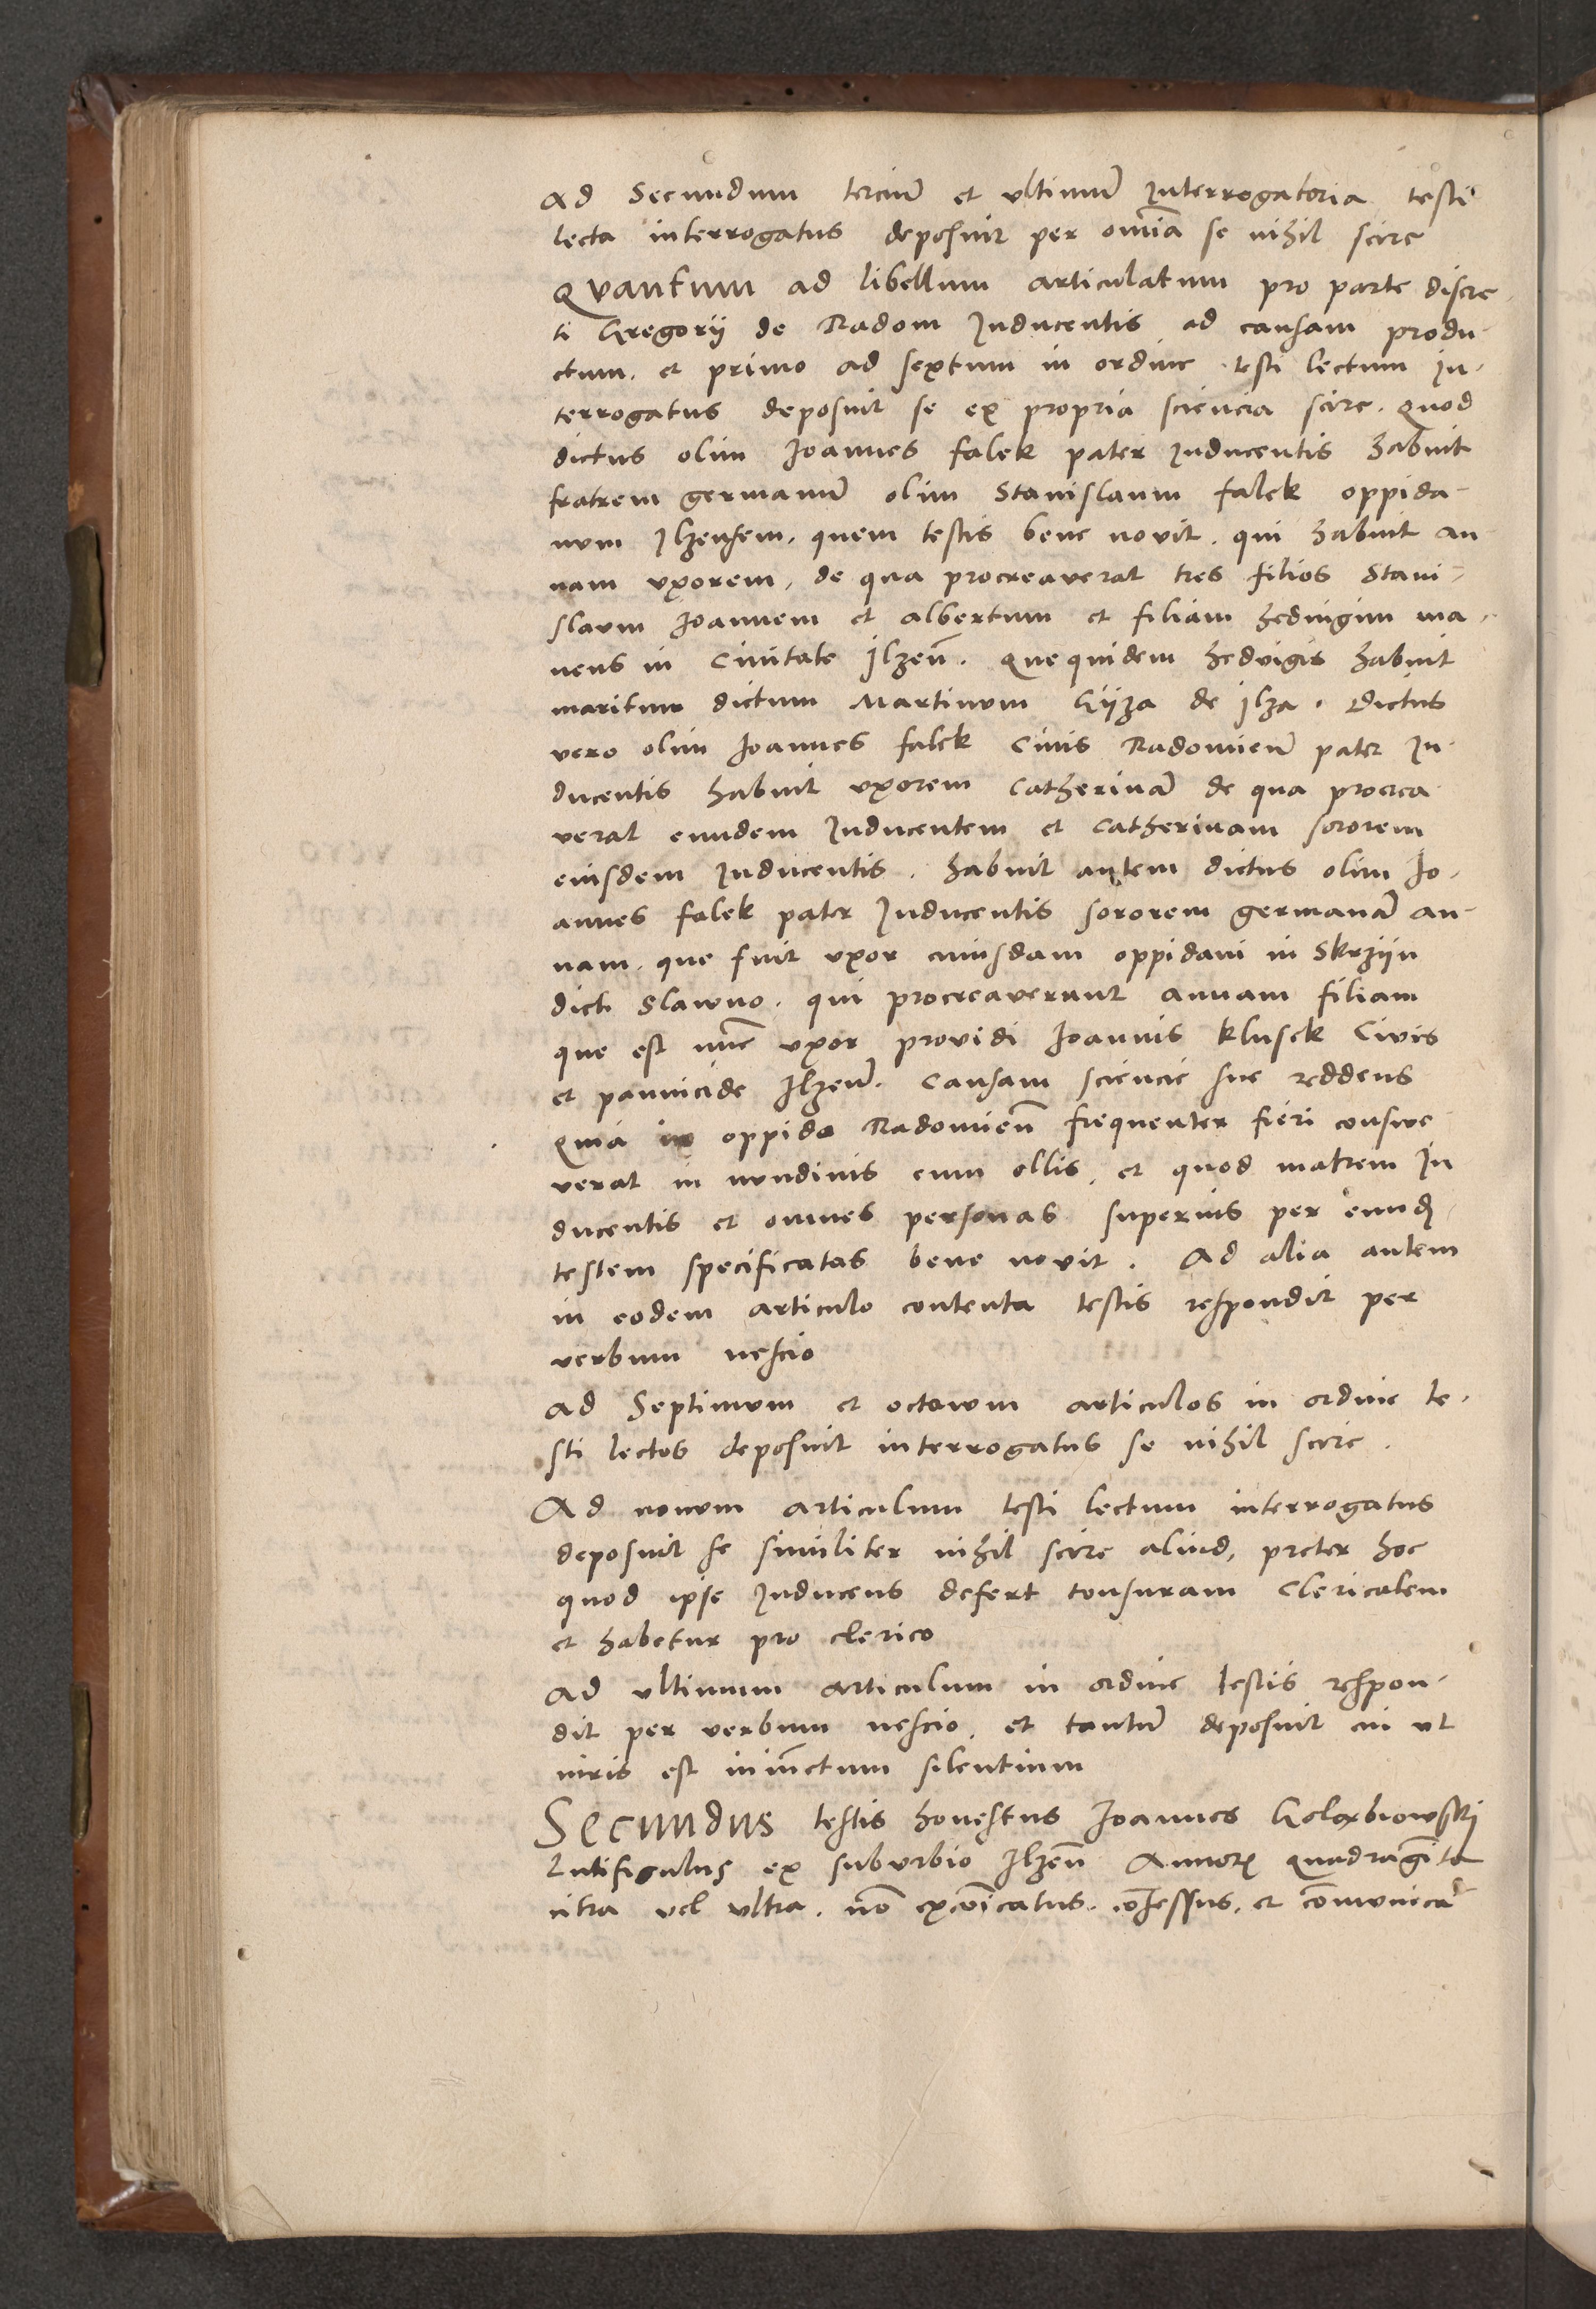 Ad Secundum terciũ et ultimũ Interrogatoria testi
lecta interrogatus deposuit per om̃ia se nihil scire
QVantum ad libellum articulatum pro parte discre-
ti Gregorij de Radom Inducentis ad causam produ-
ctum. et primo ad sextum in ordine testi lectum In-
terrogatus deposuit se ex propria sciencia scire. Quod
dictus olim Joannes falek pater Inducentis habuit
fratrem germanũ olim Stanislaum falek oppida-
num Jlzensem. quem testis bene novit. qui habuit An
nam vxorem, de qua procreaverat tres filios Stani-
slaum Joannem et albertum et filiam hedvigim ma-
nens in Civitate Jlzeñ. Que quidem hedvigis habuit
maritum dictum Martinum Gijza de Jlza. Dictus
vero olim Joannes falek Civis Radomieñ pater In-
ducentis habuit vxorem Catherinã de qua procrea
verat eundem Inducentem et Catherinam sororem
eiusdem Inducentis. habuit autem dictus olim Jo-
annes falek pater Inducentis sororem germanã An-
nam. que fuit vxor cuiusdam oppidani in Skrzijn
dicti Slawno. qui procreaverunt annam filiam
que est nũc vxor providi Joannis klusek Civis
et pannicide Jlzeñ. Causam sciencie sue reddens
Quia in oppido Radomieñ frequenter fieri consve
verat in nundinis cum ollis, et quod matrem In
ducentis et omnes personas superius per eund
testem specificatas bene novit. Ad alia autem
in eodem articulo contenta testis respondit per
verbum nescio
Ad Septimum et octavum articulos in ordine te-
sti lectos deposuit interrogatus se nihil scire.
Ad nonum articulum testi lectum interrogatus
deposuit se similiter nihil scire aliud, preter hoc
quod ipse Inducens defert tonsuram Clericalem
et habetur pro clerico
Ad ultimum articulum in ordine testis respon-
dit per verbum nescio. et tantũ deposuit cui ut
iuris est iniũctum silentium
Secundus testis honestus Joannes Golembiowskij
Lutifigulus ex suburbio Jlzeñ Annorũ quadragĩta
citra vel ultra. nõ excõicatus. cõfessus. et cõmunica